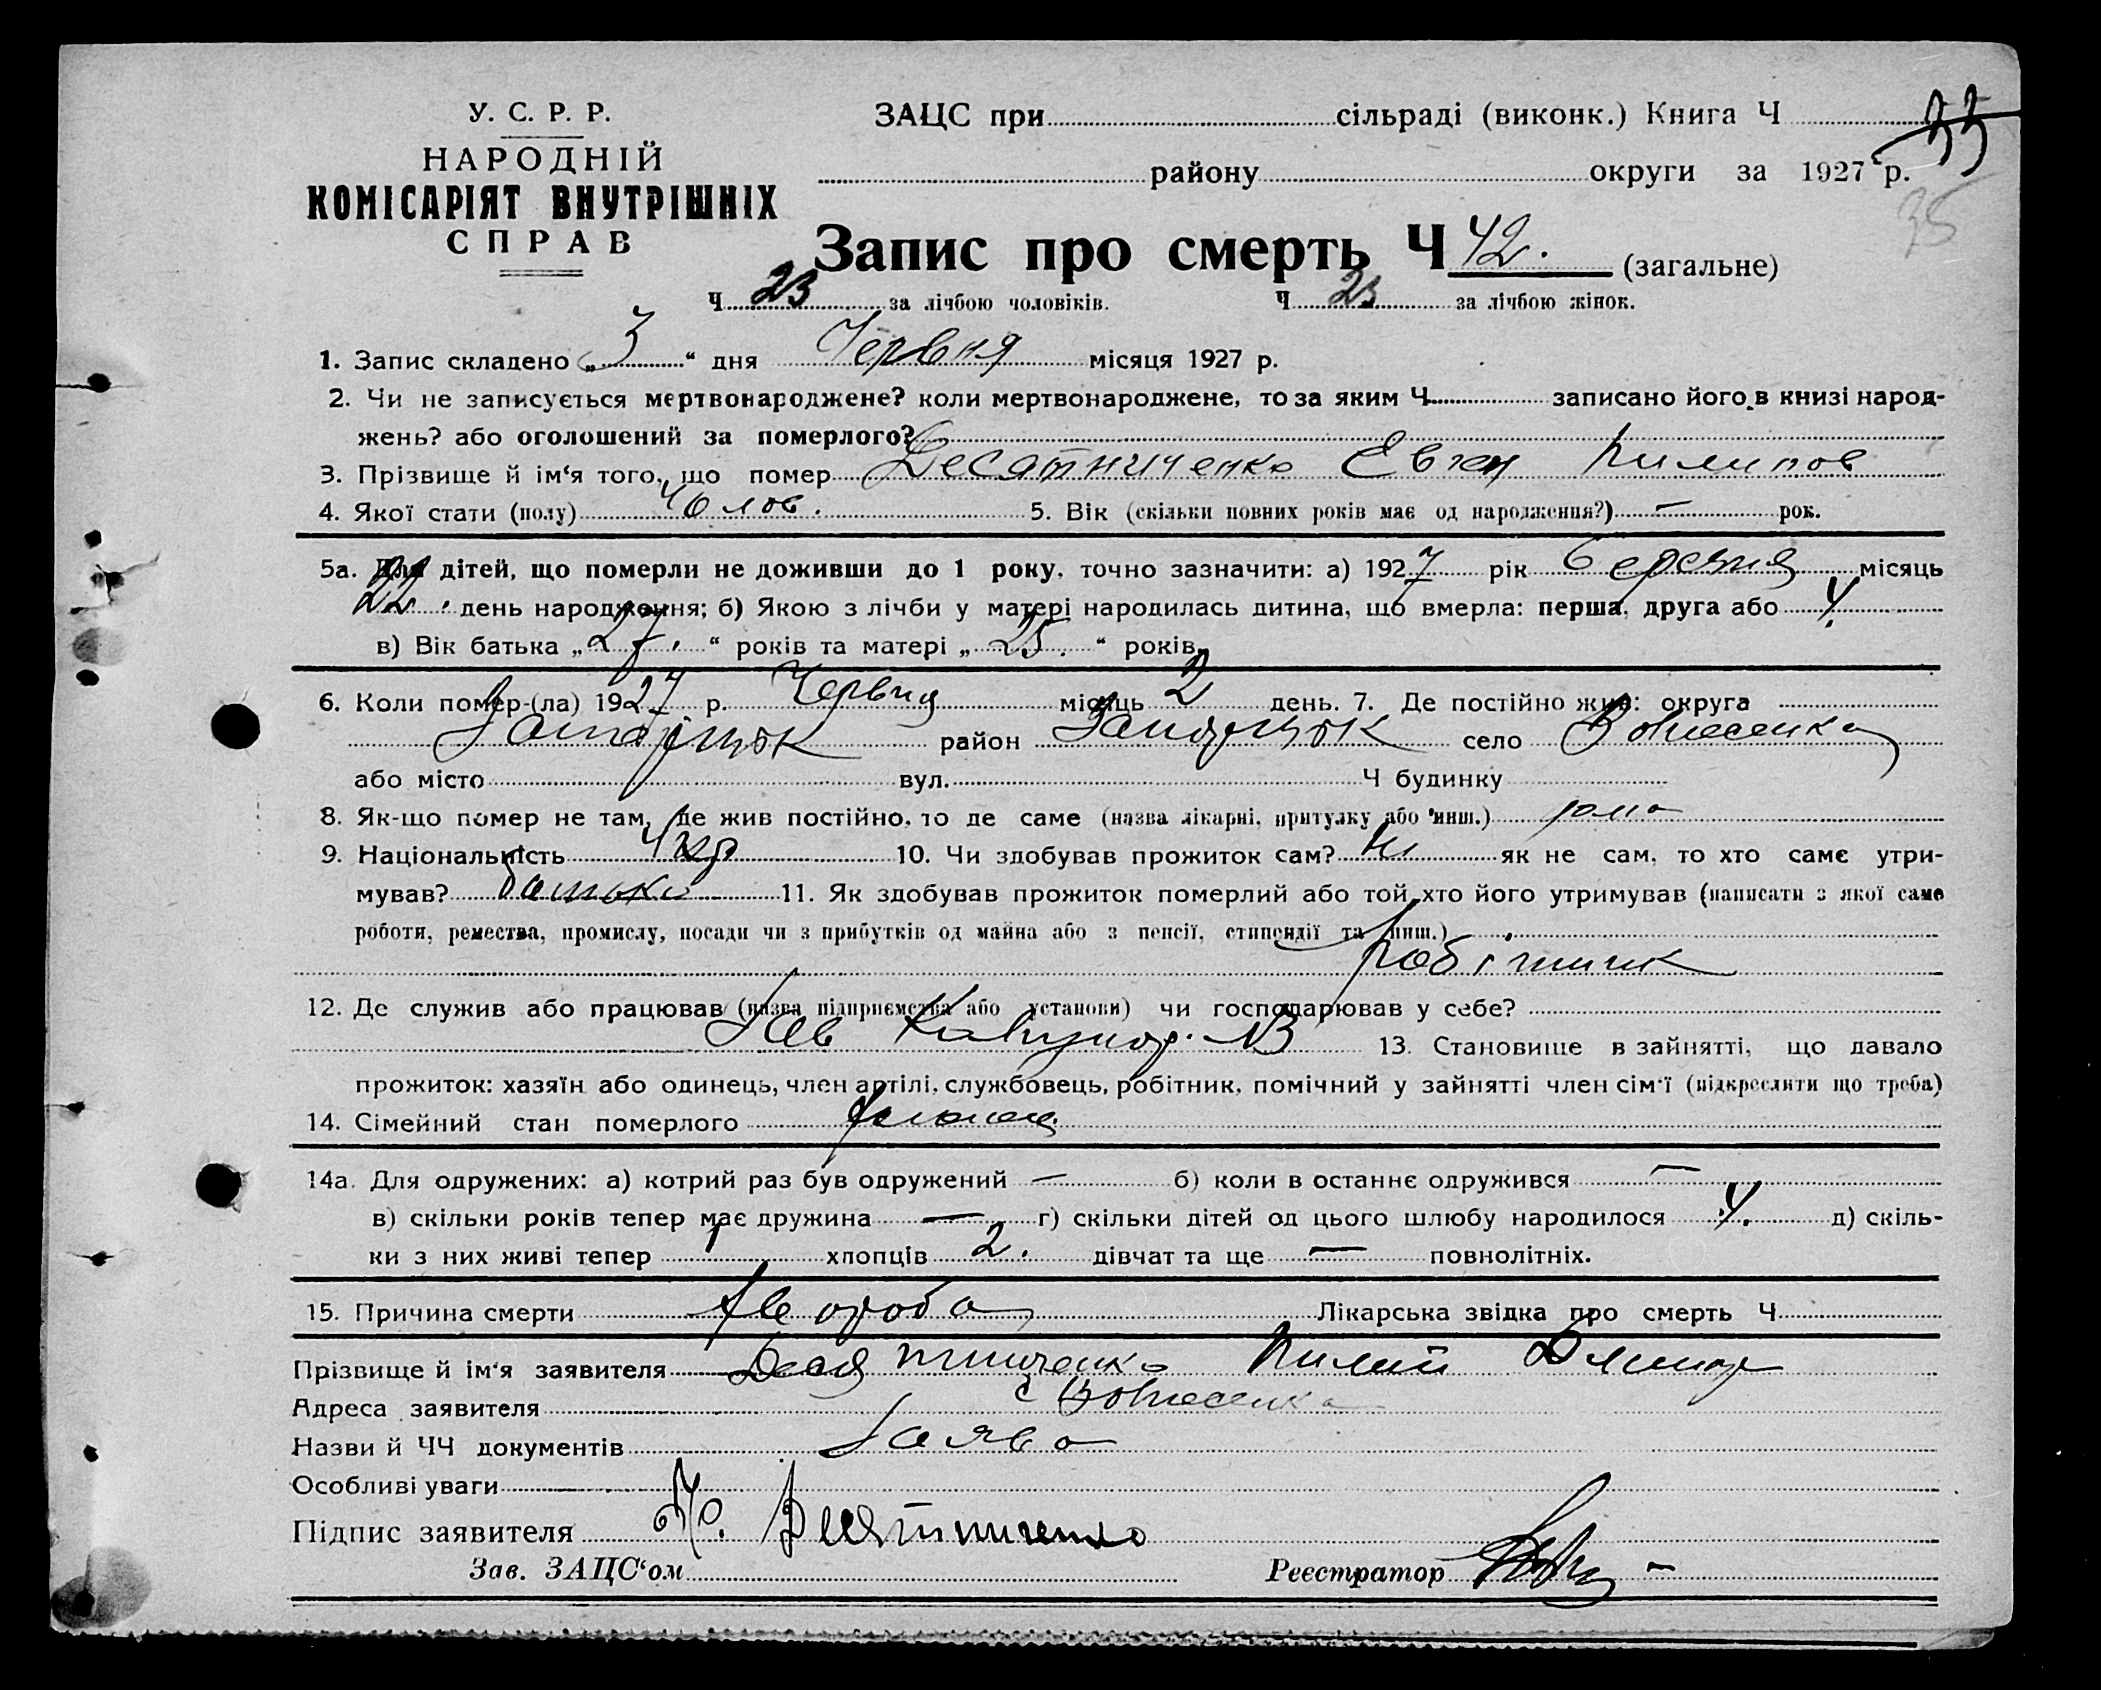 У. С. Р. Р.
НАРОДНІЙ
КОМІСАРІЯТ ВНУТРІШНІХ
СПРАВ
ЗАЦС при сільраді (виконк.) Книга Ч 33
району округи за 1927 р.
35
Запис про смерть Ч 42. (загальне)
Ч 23 за лічбою чоловіків. Ч 23 за лічбою жінок.
1. Запис складено „3“ дня Червня місяця 1927 р.
2. Чи не записується мертвонароджене? коли мертвонароджене, то за яким Ч записано його в книзі народ-
жень? або оголошений за померлого?
3. Прізвище й ім‘я того, що помер Десятниченко Евген Пилипов
4. Якої стати (полу) Чолов. 5. Вік (скільки повних років має од народження?) — рок.
5а. Для дітей, що померли не доживши до 1 року, точно зазначити: а) 1927 рік березня місяць
22. день народження; б) Якою з лічби у матері народилась дитина, що вмерла: перша, друга або 4.
в) Вік батька „27.“ років та матері „25.“ років.
6. Коли помер-(ла) 1927 р. Червня місяць 2 день. 7. Де постійно жив: округа
Запоріжжя район Запоріжжя село Вознесенка
або місто вул. Ч будинку
8. Як-що помер не там, де жив постійно, то де саме (назва лікарні, притулку або инш.) дома
9. Національність Укр 10. Чи здобував прожиток сам? Ні як не сам, то хто саме утри-
мував? батько 11. Як здобував прожиток померлий або той хто його утримував (написати з якої саме
роботи, ремества, промислу, посади чи з прибутків од майна або з пенсії, стипендії та инш.)
робітник
12. Де служив або працював (назва підприємства або установи) чи господарював у себе?
Зав Комунар. 13. Становище в зайнятті, що давало
прожиток: хазяїн або одинець, член артілі, службовець, робітник, помічний у зайнятті член сім‘ї (підкреслити що треба)
14. Сімейний стан померлого
14а. Для одружених: а) котрий раз був одружений — б) коли в останнє одружився —
в) скільки років тепер має дружина — г) скільки дітей од цього шлюбу народилося 4. д) скіль-
ки з них живі тепер 1 хлопців 2. дівчат та ще — повнолітніх.
15. Причина смерти Хвороба Лікарська звідка про смерть Ч
Прізвище й ім‘я заявителя Десятниченко Пилип
Адреса заявителя с Вознесенка
Назви й ЧЧ документів Заява
Особливі уваги
Підпис заявителя Десятниченко
Зав. ЗАЦС‘ом Реєстратор